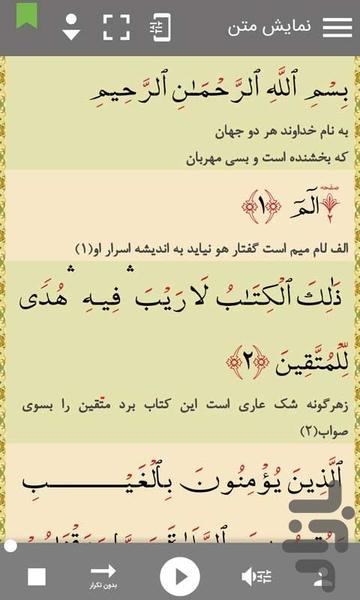 نمایش متن
بِسْمِ ٱللَّهِ ٱلرَّحْمَـٰنِ ٱلرَّحِيمِ
به نام خداوند هر دو جهان
که بخشنده است و بسی مهربان
صفحه ۲
الٓمٓ ﴿١﴾
الف لام میم است گفتار هو نیاید به اندیشه اسرار او(۱)
ذَٰلِكَ ٱلْكِتَـٰبُ لَا رَيْبَ ۛ فِيهِ ۛ هُدًى
لِّلْمُتَّقِينَ ﴿٢﴾
زهرگونه شک عاری است این کتاب برد متّقین را بسوی
صواب(۲)
ٱلَّذِينَ يُؤْمِنُونَ بِٱلْغَيْبِ
بدون تکرار
بازار